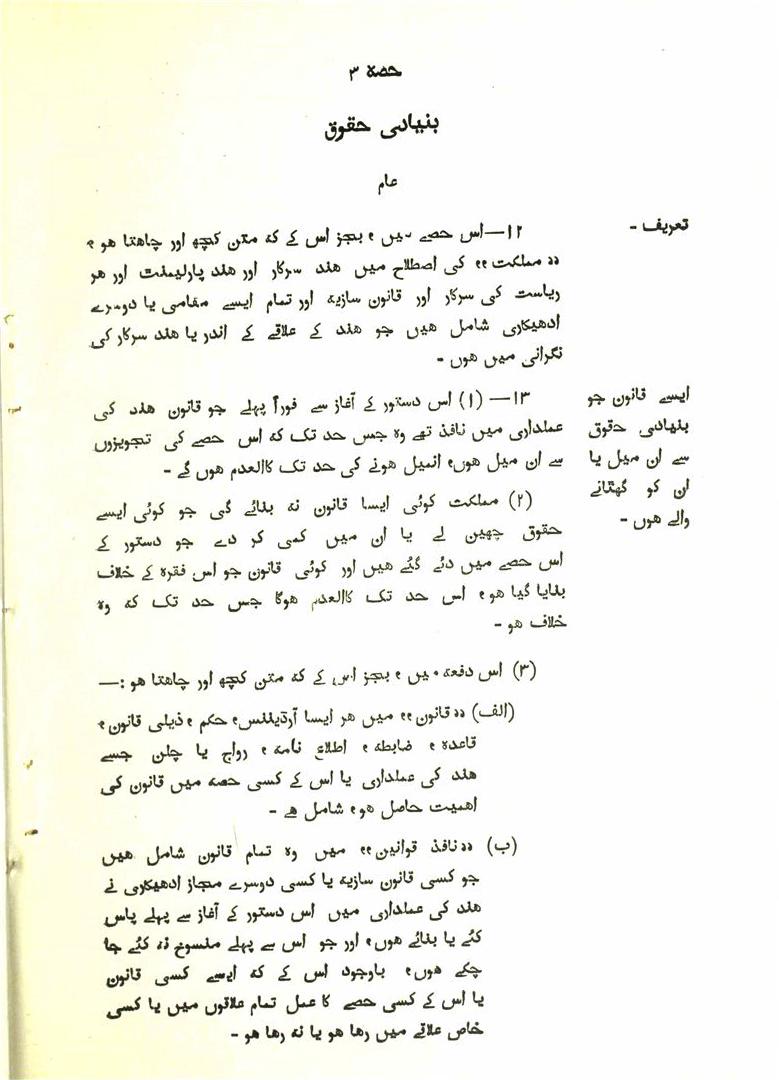 حصہ ۳
بنیادی حقوق
عام
تعریف -
۱۲—اس حصے میں، بجز اس کے کہ متن کچھ اور چاہتا ہو،
”مملکت“ کی اصطلاح میں ہند سرکار اور ہند پارلیمنٹ اور ہر
ریاست کی سرکار اور قانون سازیہ اور تمام ایسے مقامی یا دوسرے
ادھیکاری شامل ہیں جو ہند کے علاقے کے اندر یا ہند سرکار کی
نگرانی میں ہوں -
ایسے قانون جو
بنیادی حقوق
سے ان میل یا
ان کو گھٹانے
والے ہوں -
۱۳— (۱) اس دستور کے آغاز سے فوراً پہلے جو قانون ہند کی
عملداری میں نافذ تھے وہ جس حد تک کہ اس حصے کی تجویزوں
سے ان میل ہوں، انمیل ہونے کی حد تک کالعدم ہوں گے -
(۲) مملکت کوئی ایسا قانون نہ بنائے گی جو کوئی ایسے
حقوق چھین لے یا ان میں کمی کر دے جو دستور کے
اس حصے میں دئے گئے ہیں اور کوئی قانون جو اس فقرہ کے خلاف
بنایا گیا ہو، اس حد تک کالعدم ہوگا جس حد تک کہ وہ
خلاف ہو -
(۳) اس دفعہ میں، بجز اس کے کہ متن کچھ اور چاہتا ہو :—
(الف) ”قانون“ میں ہر ایسا آرڈیننس، حکم، ذیلی قانون،
قاعدہ، ضابطہ، اطلاع نامہ، رواج یا چلن جسے
ہند کی عملداری یا اس کے کسی حصہ میں قانون کی
اہمیت حاصل ہو، شامل ہے -
(ب) ”نافذ قوانین“ میں وہ تمام قانون شامل ہیں
جو کسی قانون سازیہ یا کسی دوسرے مجاز ادھیکاری نے
ہند کی عملداری میں اس دستور کے آغاز سے پہلے پاس
کئے یا بنائے ہوں، اور جو اس سے پہلے منسوخ نہ کئے جا
چکے ہوں، باوجود اس کے کہ ایسے کسی قانون
یا اس کے کسی حصے کا عمل تمام علاقوں میں یا کسی
خاص علاقے میں رہا ہو یا نہ رہا ہو -